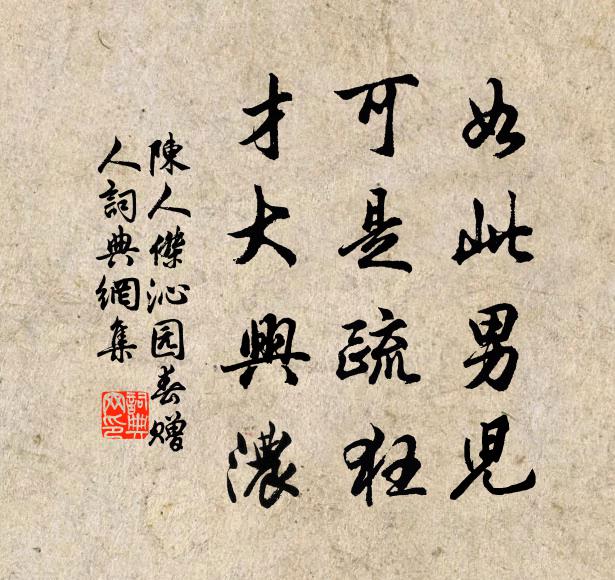 如此男児
可是疏狂
才大興濃
陳人傑沁园春赠
人詞典網集
詞典
网印